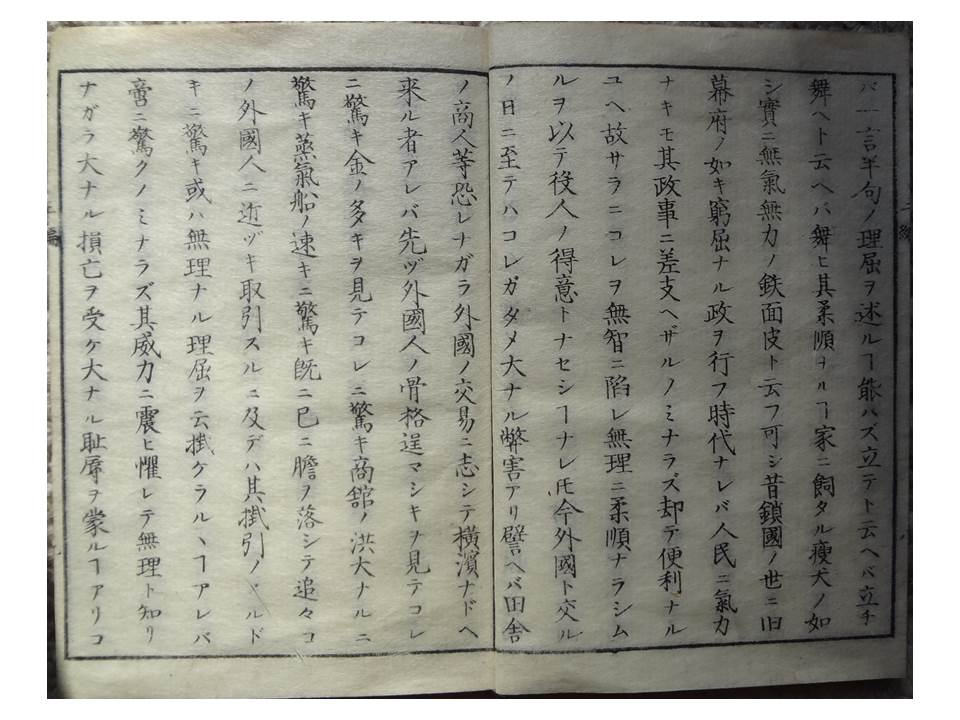 バ一言半句ノ理屈ヲ述ルヿ能ハズ立テト云ヘバ立チ
舞ヘト云ヘバ舞ヒ其柔順ナルヿ家ニ飼タル瘦犬ノ如
シ實ニ無氣無力ノ鉄面皮ト云フ可シ昔鎖國ノ世ニ旧
幕府ノ如キ窮屈ナル政ヲ行フ時代ナレバ人民ニ氣力
ナキモ其政事ニ差支ヘザルノミナラズ却テ便利ナル
ユヘ故サラニコレヲ無智ニ陷レ無理ニ柔順ナラシム
ルヲ以テ役人ノ得意トナセシヿナレ𪜈今外國ト交ル
ノ日ニ至テハコレガタメ大ナル弊害アリ譬ヘバ田舎
ノ商人等恐レナガラ外國ノ交易ニ志シテ橫濱ナドヘ
來ル者アレバ先ヅ外國人ノ骨格逞マシキヲ見テコレ
ニ驚キ金ノ多キヲ見テコレニ驚キ商舘ノ洪大ナルニ
驚キ蒸氣船ノ速キニ驚キ旣ニ已ニ膽ヲ落シテ追々コ
ノ外國人ニ近ヅキ取引スルニ及デハ其掛引ノスルド
キニ驚キ或ハ無理ナル理屈ヲ云掛ケラルヽヿアレバ
啻ニ驚クノミナラズ其威力ニ震ヒ懼レテ無理ト知リ
ナガラ大ナル損亡ヲ受ケ大ナル耻辱ヲ蒙ルヿアリコ